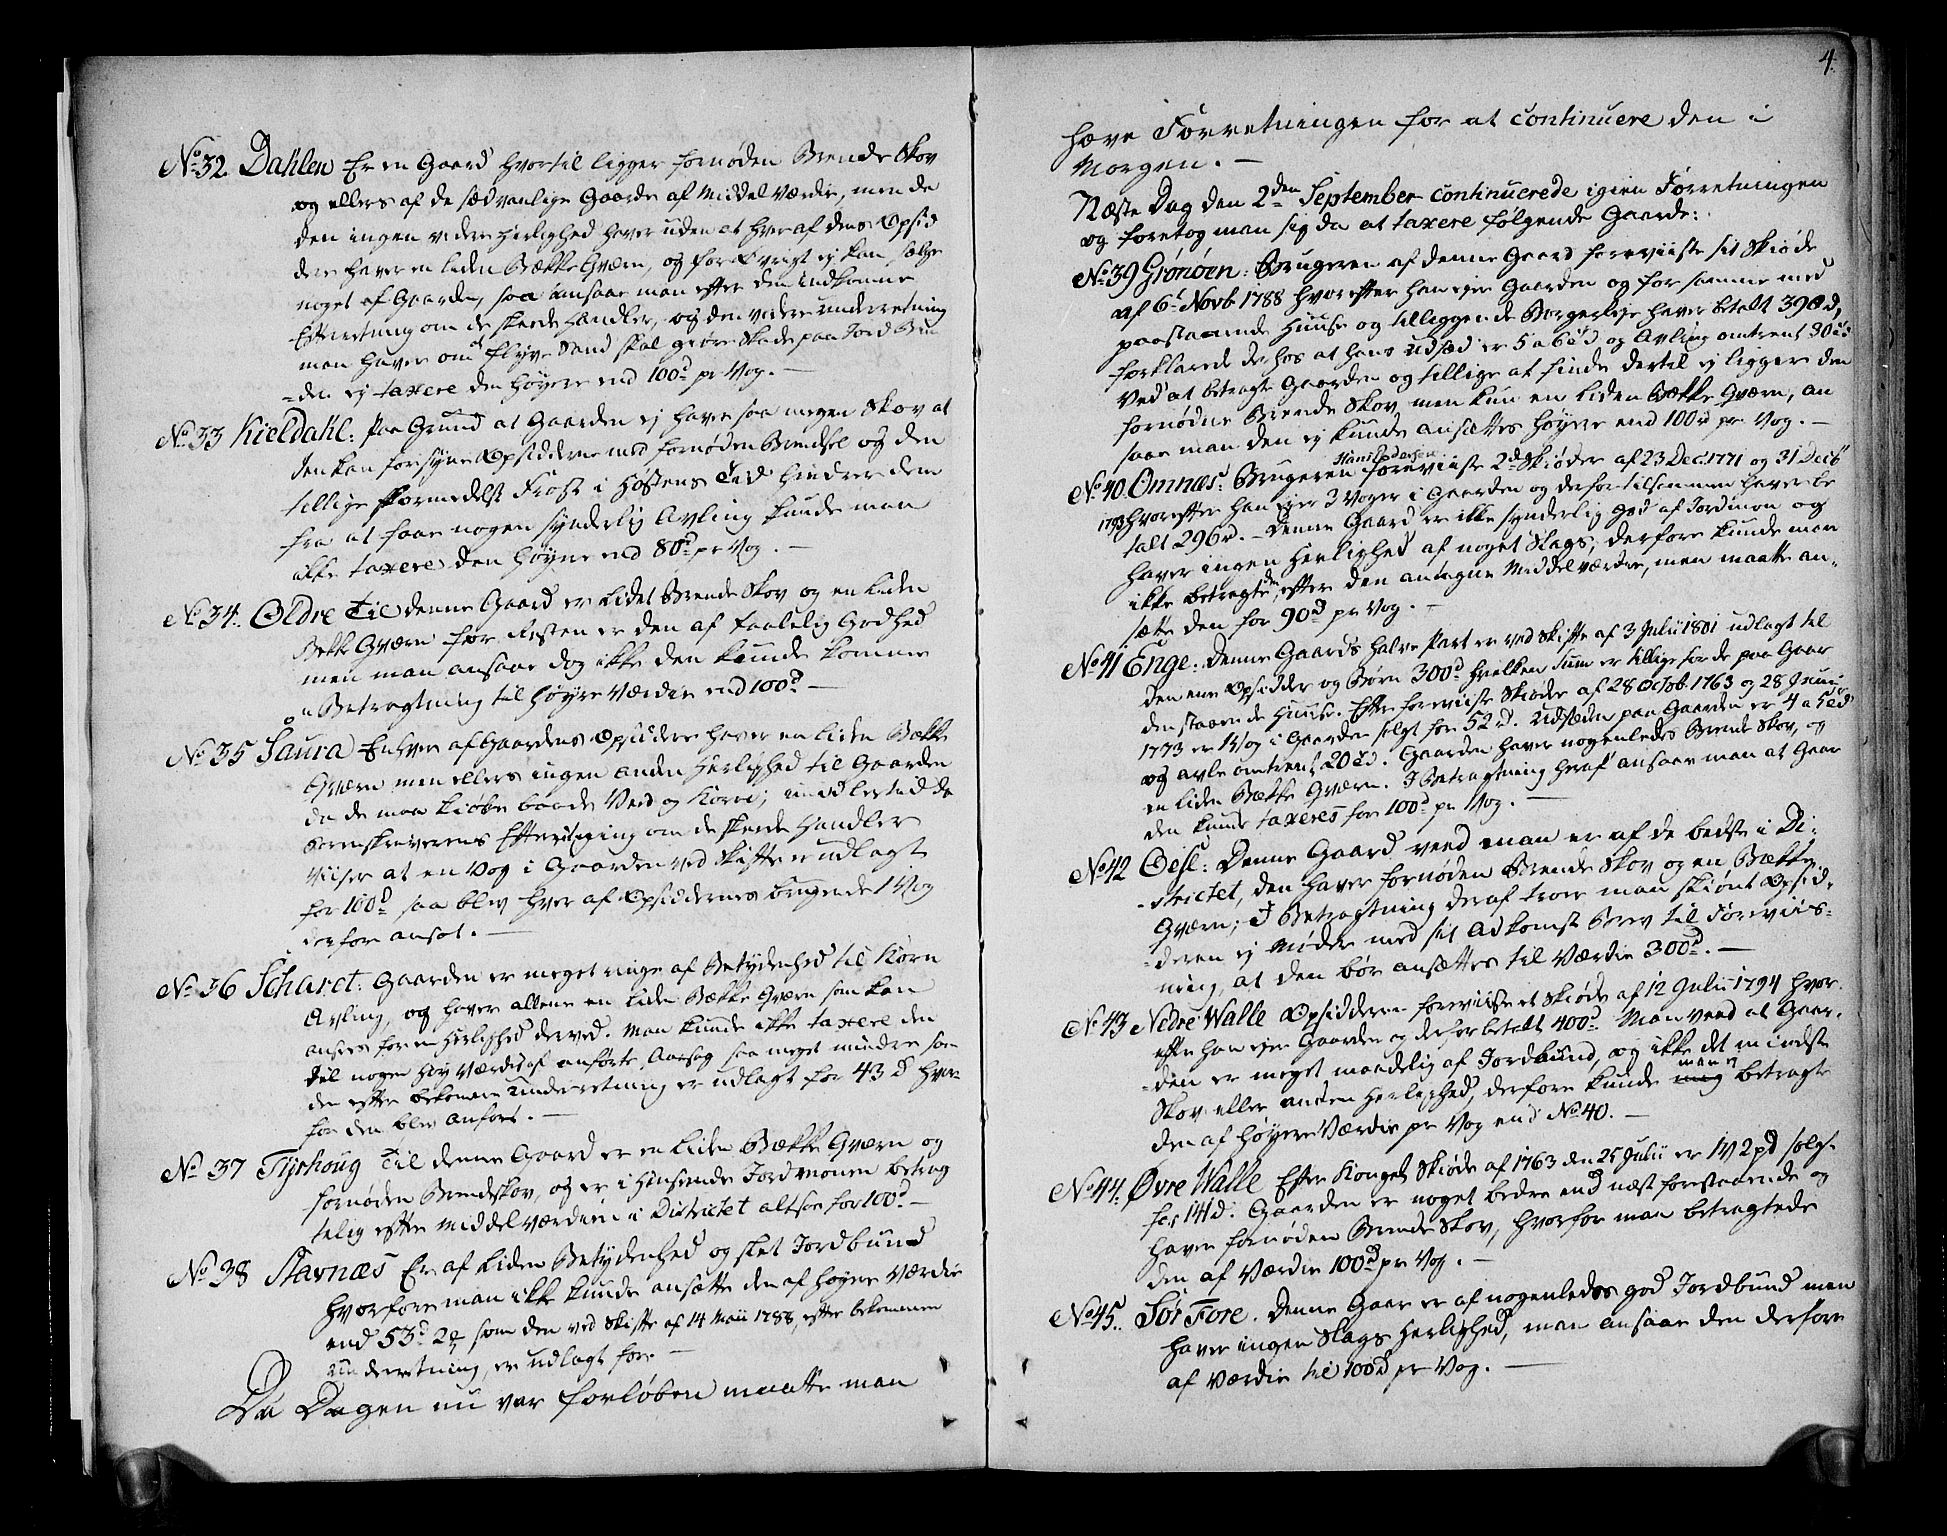 No 32 Dahlen Er en Gaard hvortil ligger fornøden Brende Skov
og ellers af de sædvanlige Gaarde af Middel Værdie, men da
den ingen videre Herlighed haver uden at hver af dens Opsid
dere haver en liden Bække Qværn, og for Øvrigt ej kan sælge
noget af Gaarden, saa ansaae man efter den indkomne
Efterretning om de skeede Handler, og den videre underretning
man haver om at Flyve Sand skal giøre Skade paa Jord Bun
-den ej taxere den høyere end 100d pr Vog. —
No 33 Kieldahl: Paa Grund at Gaarden ej haver saa megen Skov at
den kan forsyne Opsidderne med fornøden Brendsel og den
tillige formedelst Frost i Høstens Tid hindrer dem
fra at faae nogen synderlig Avling kunde man
ikke taxere den høyere end 80d pr Vog. —
No 34. Oldre Til denne Gaard er lidet Brende Skov og en liden
Bekke Qværn for Resten er den af taalelig Godhed
men man ansaae dog ikke den kunde komme
i Betragtning til høyre Værdie end 100d —
No 35 Saura Enhver af Gaardens Opsiddere haver en liden Bække
Qværn men ellers ingen anden Herlighed til Gaarden
da de maa kiøbe baade Veed og Korn; imidlertid da
Sorenskriverens Efterretning om de skeede Handler
viiser at en Vog i Gaarden ved Skifte er udlagt
for 100d saa blev hver af Opsiddernes brugende 1 Vog
derfore ansat. —
No 36 Scharet: Gaarden er meget ringe af Betydenhed til Korn
Avling, og haver allene en liden Bække Qværn som kan
ansees for en Herlighed derved. Man kunde ikke taxere den
til nogen høy Værdie af anførte Aarsag saa meget mindre som
den efter bekomne Underretning er udlagt for 43d hvor-
for den blev anført. —
No 37 Tyrhoug Til denne Gaard er en liden Bække Qværn og
fornøden Brendeskov, og er i Hinseende Jordmonen betrag
telig efter middel værdien i Districtet altsaa for 100d —
No 38 Stavnæs Er af liden Betydenhed og slet Jordbund
hvorfore man ikke kunde ansætte den af høyere Værdie
end 53d 2 som den ved Skifte af 14 Maii 1788, efter bekommen
Underretning, er udlagt for. —
Da Dagen nu var forløben maatte man
4.
hæve Forretningen for at continuere den i
Morgen. —
Næste Dag den 2den September continuerede igien Forretningen
og foretog man sig da at taxere følgende Gaarde:
No 39 Grønøen: Brugeren af denne Gaard foreviiste sit Skiøde
af 6t Novb 1788 hvorefter han ejer Gaarden og for samme med
paastaaende Huuse og tilliggende Borgerleje haver betalt 398d,
forklarede derhos at hans Udsæd er 5 a 6td og Avling omtrent 30td
Ved at betragte Gaarden og tillige at finde dertil ej ligger den
fornødne Brende Skov, men kun en liden Bække Qværn, an
saae man den ej kunde ansættes høyere end 100d pr Vog. —
Hans Pedersen
No 40. Omnæs: Brugeren foreviiste 2de Skiøder af 23 Dec: 1771 og 31 Decb
1793 hvorefter han ejer 3 Voger i Gaarden og derfor tilsammen haver be
talt 296d. — Denne Gaard er ikke synderlig god af Jordmon og
haver ingen Herlighed af noget Slags, derfore kunde man
ikke betragte den, efter den antagne Middel værdie, men maatte an-
sætte den for 90d pr Vog. —
No 41 Enge: Denne Gaards halve Part er ved Skifte af 3 Julii 1801 udlagt til
den ene Opsidder og Børn 300d hvilken Sum er tillige for de paa Gaar
den staaende Huuse. Efter foreviiste Skiøder af 28 Octob. 1763 og 28 Junii
1773 er 1 Vog i Gaarden solgt for 52d. Udsæden paa Gaarden er 4 a 5td
og avle omtrent 20td. Gaarden haver nogenledes Brende Skov, og
en liden Bække Qværn. I Betragtning heraf ansaae man at Gaar
den kunde taxeres for 100d pr Vog. —
No 42 Oesl: Denne Gaard veed man er af de bedste i Di-
-strictet, den haver fornøden Brende Skov og en Bække
Qværn; I Betragtning deraf troer man skiønt Opsid-
-deren ej Møder med sit Adkomst Brev til Foreviis-
ning, at den bør ansættes til Værdie 300d. —
No 43 Nedre Walle Opsidderen foreviiste et Skiøde af 12 Julii 1794 hvor-
efter han ejer Gaarden og derfor betalt 400d Man veed at Gaar-
-den er meget maadelig af Jordbund, og ikke det mindste
Skov eller anden Herlighed, derfore kunde man ej betragte
den af høyere Værdie pr Vog end No 40. —
No 44. Øvre Walle Efter Kongel Skiøde af 1763 den 25 Julii er 1V 2pd solgt
for 141d. Gaarden er noget bedre end næst forestaaende og
haver fornøden Brende Skov, hvorfor man betragtede
den af Værdie 100d pr Vog. —
No 45. Sør Fore. Denne Gaar er af nogenledes god Jordbund men
haver ingen Slags Herlighed, man ansaae den derfore
af Værdie til 100d pr Vog. —